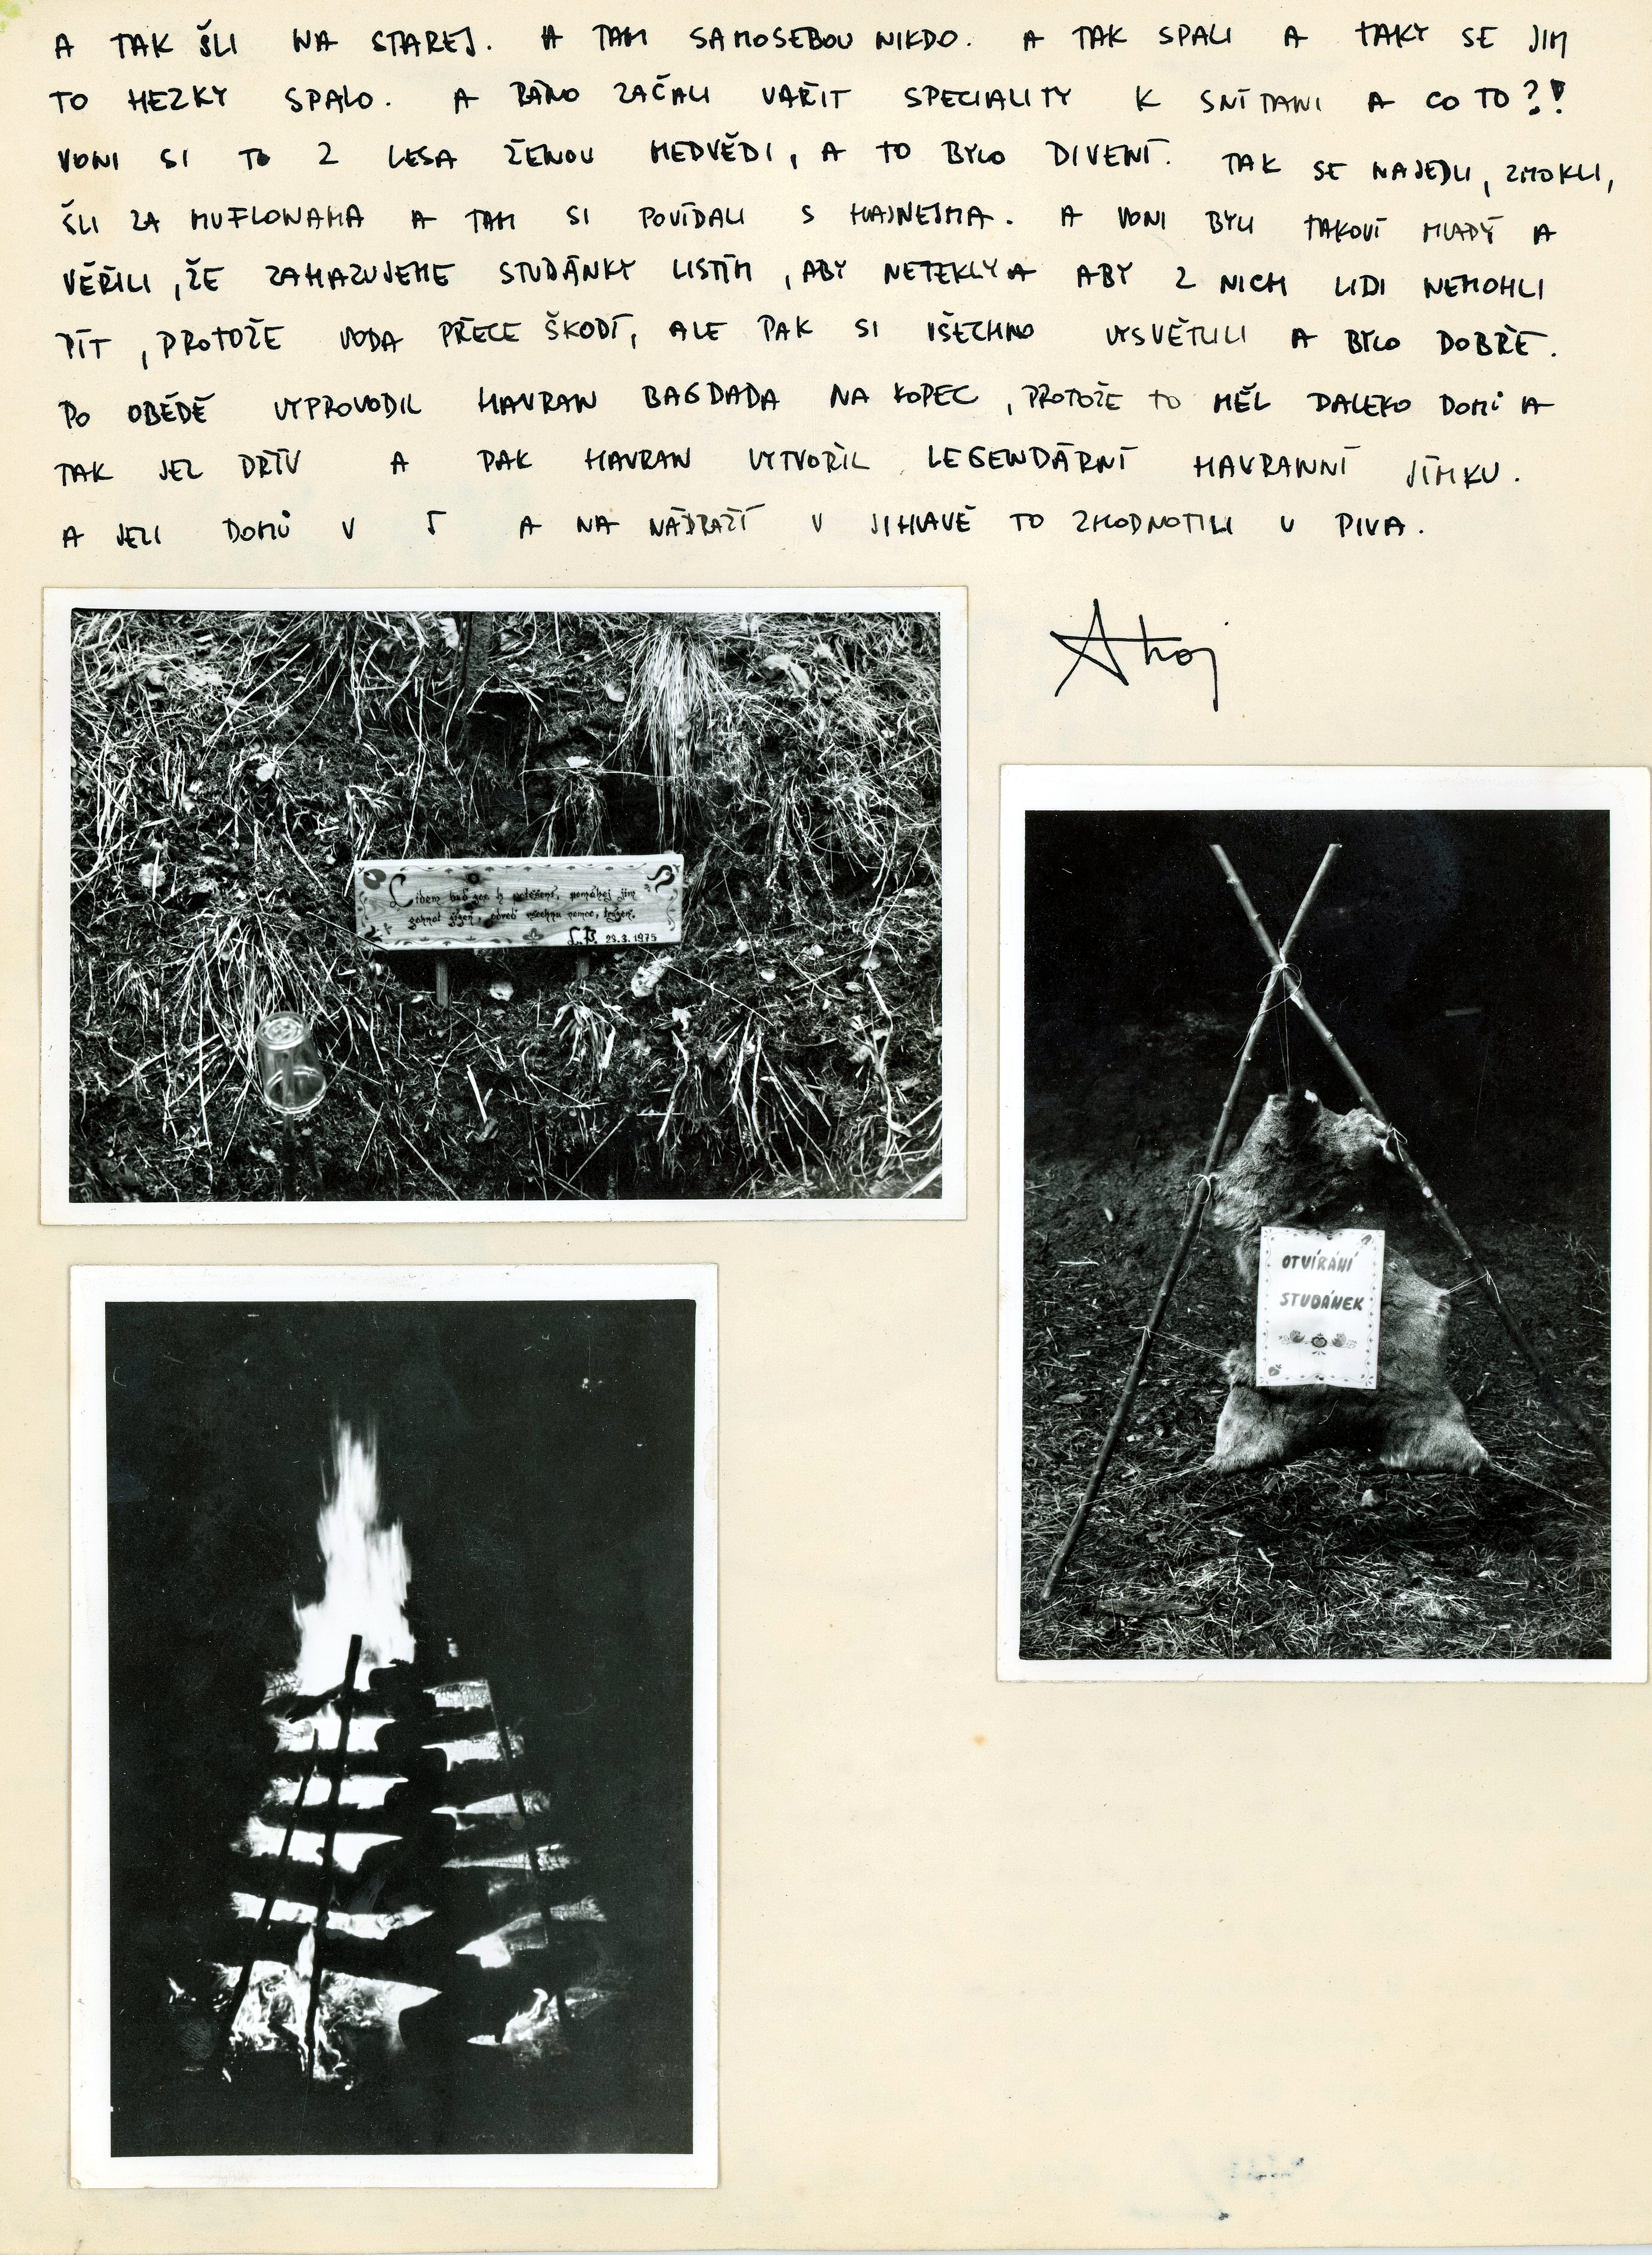 A TAK ŠLI NA STAREJ. A TAM SAMOSEBOU NIKDO. A TAK SPALI A TAKY SE JIM
TO HEZKY SPALO. A RÁNO ZAČALI VAŘIT SPECIALITY K SNÍDANI A CO TO?!
VONI SI TO Z LESA ŽENOU MEDVĚDI, A TO BYLO DIVENÍ. TAK SE NAJEDLI, ZMOKLI,
ŠLI ZA MUFLONAMA A TAM SI POVÍDALI S HAJNEJMA. A VONI BYLI TAKOVÍ MLADÝ A
VĚŘILI, ŽE ZAHAZUJEME STUDÁNKY LISTÍM, ABY NETEKLY A ABY Z NICH LIDI NEMOHLI
PÍT, PROTOŽE VODA PŘECE ŠKODÍ, ALE PAK SI VŠECHNO VYSVĚTLILI A BYLO DOBŘE.
PO OBĚDĚ VYPROVODIL HAVRAN BAGDADA NA KOPEC, PROTOŽE TO MĚL DALEKO DOMŮ A
TAK JEL DŘÍV A PAK HAVRAN VYTVOŘIL LEGENDÁRNÍ HAVRANNÍ JÍMKU.
A JELI DOMŮ V 5 A NA NÁDRAŽÍ V JIHLAVĚ TO ZHODNOTILI U PIVA.
Ahoj
Lidem buď jen k potěšení, pomáhej jim
zahnat žízeň, odveď všechnu nemoc, trýzeň.
L.B. 29.3.1975
OTVÍRÁNÍ
STUDÁNEK